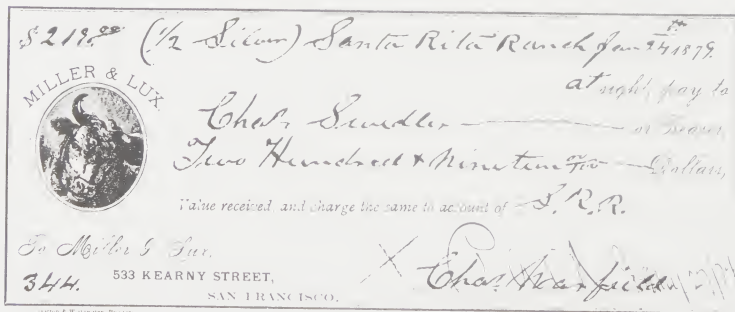 $219.00 (1/2 Silver) Santa Rita Ranch Jan 24th 1879.
MILLER & LUX.
at sight, pay to
Chas. Swedler or Bearer,
Two Hundred & Nineteen 00/100 Dollars,
Value received and charge the same to account of S.R.R.
To Miller & Lux,
344. 533 KEARNY STREET, Chas. Warfield
SAN FRANCISCO.